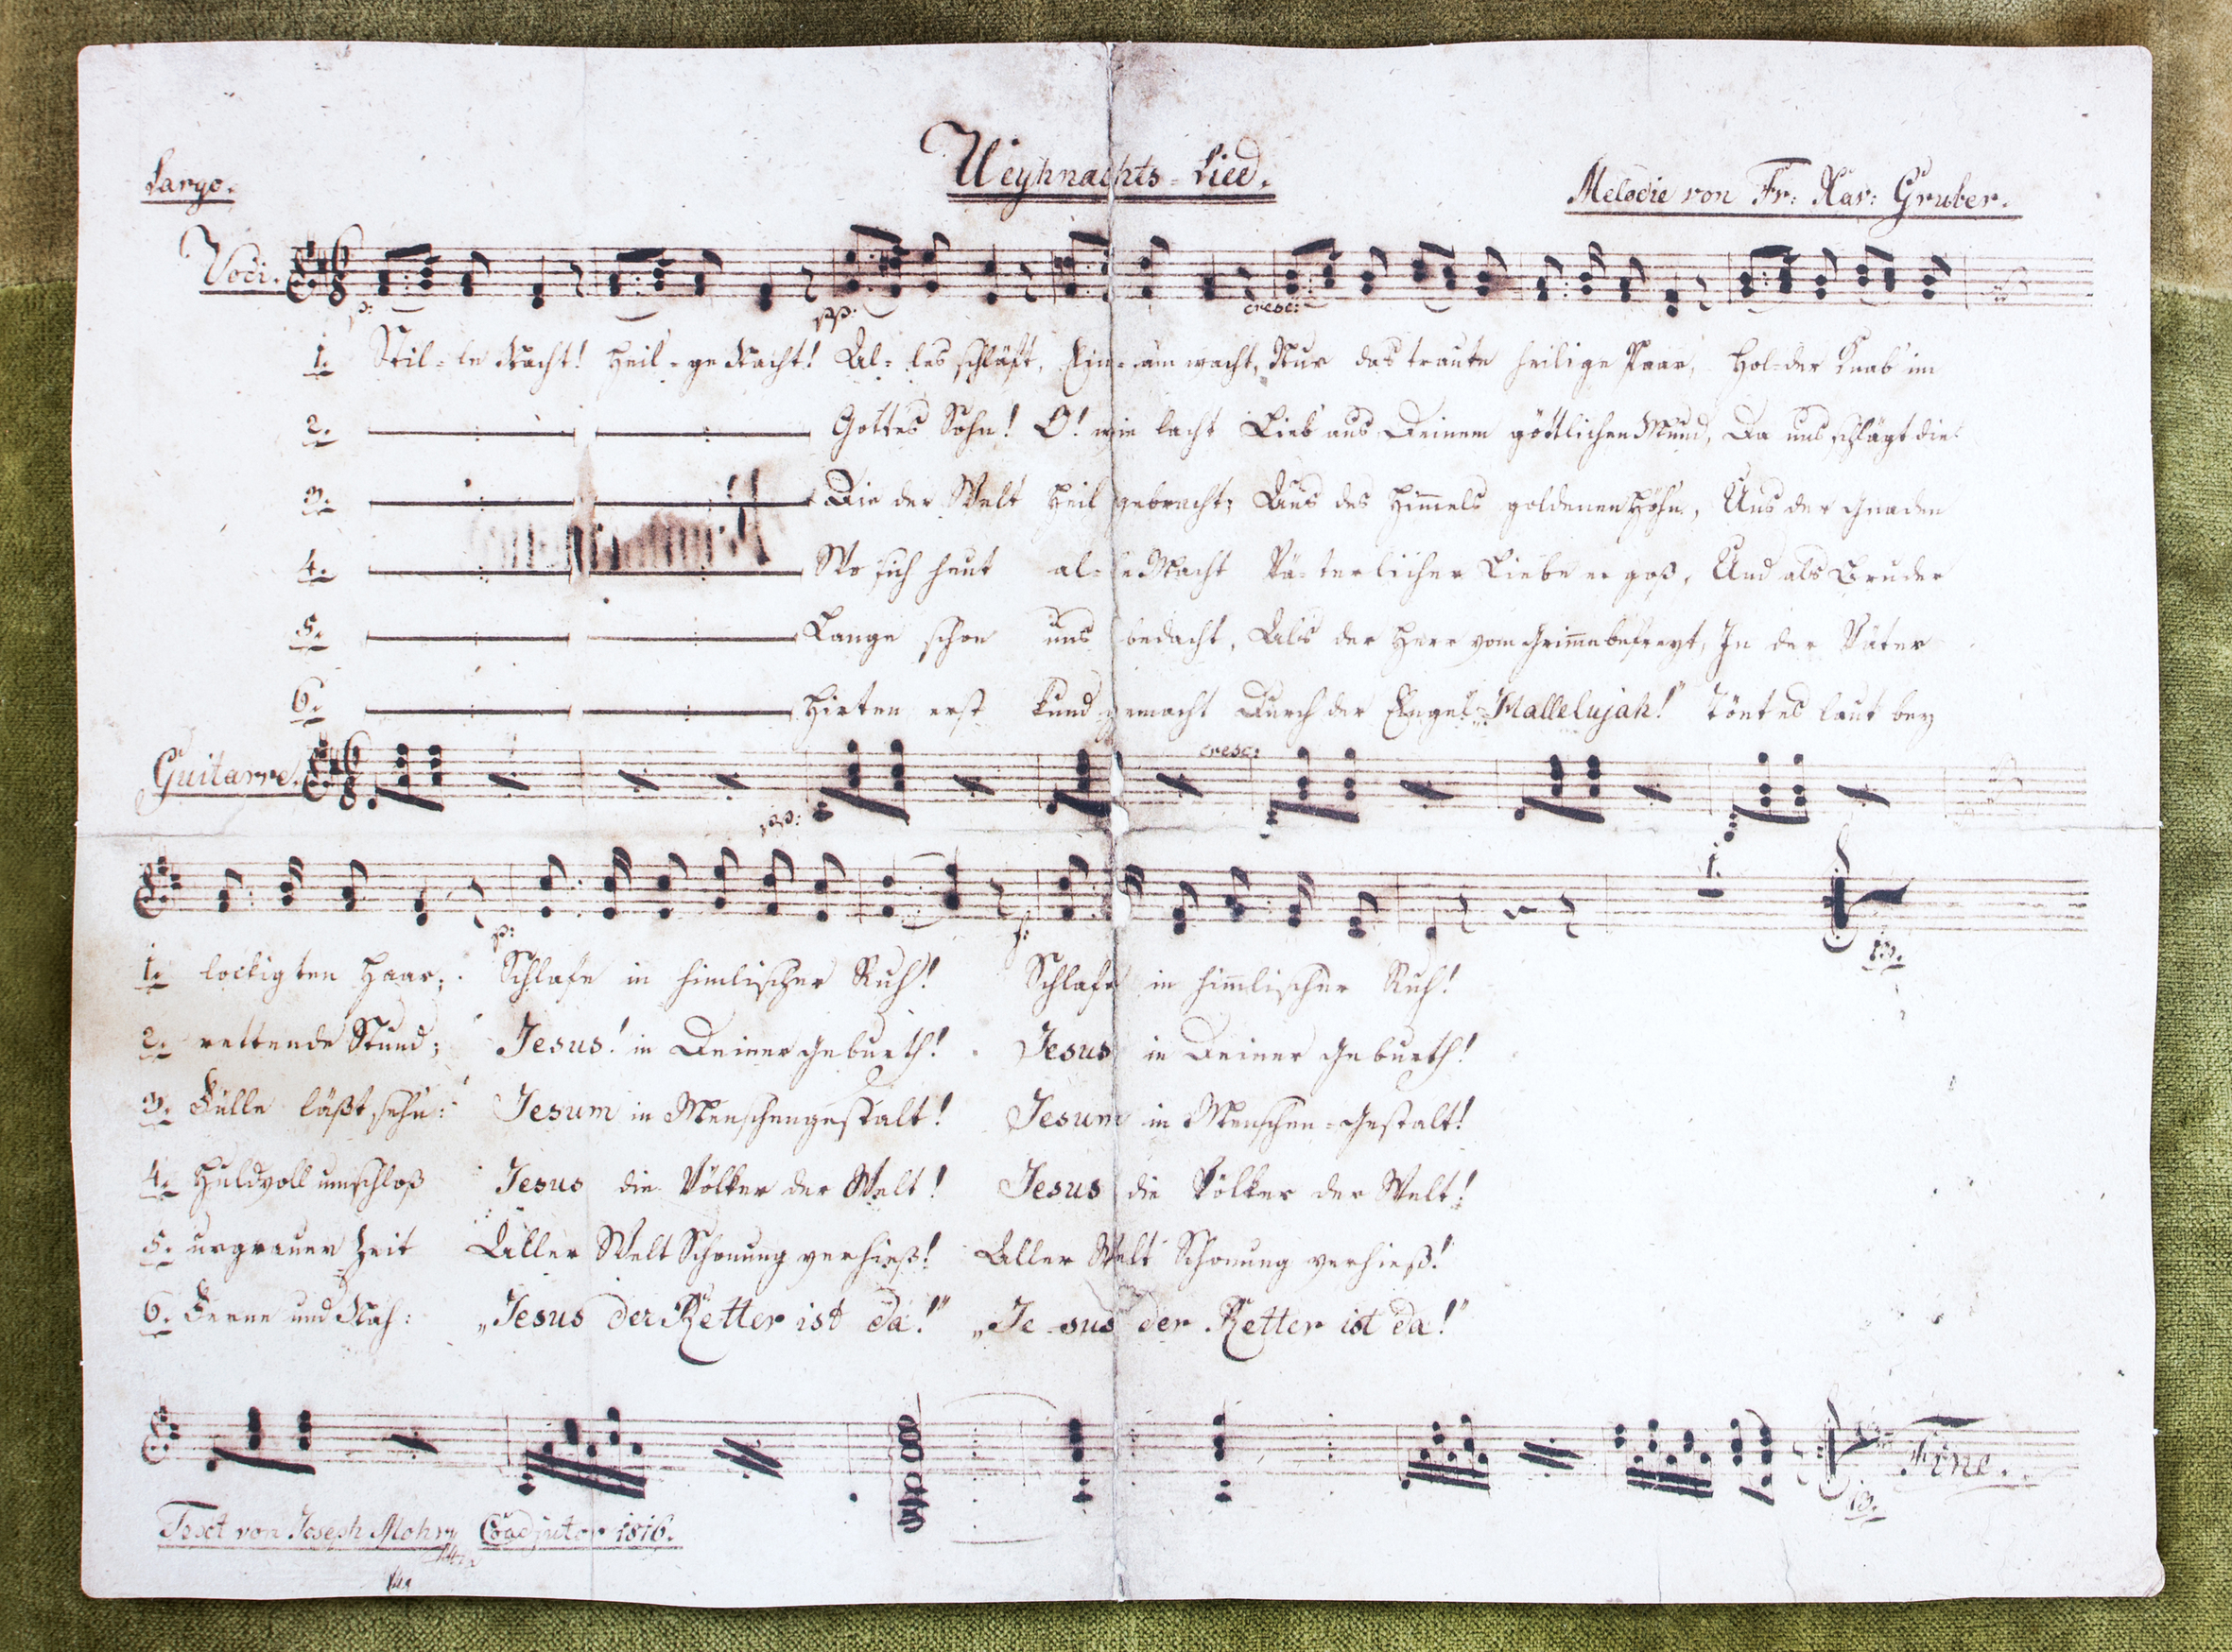 Weyhnachts-Lied.
Largo.
Melodie von Fr: Xav: Gruber.
Voci.
p: pp: cresc:
1. Stil-le Nacht! Heil-ge Nacht! Al-les schläft, Einsam wacht, Nur das traute heilige Paar, Hol-der Knab' im
2. Gottes Sohn! O! wie lacht Lieb' aus Deinem göttlichen Mund, Da uns schlägt die
3. Die der Welt Heil gebracht; Aus des Him̄els goldenen Höhn, Uns der Gnaden
4. Wo sich heut al-le Macht Vä-terlicher Liebe ergoß, Und als Bruder
5. Lange schon uns bedacht, Als der Herr vom Grim̄e befreyt, In der Väter
6. Hirten erst kund gemacht Durch der Engel „Hallelujah!" Tönt es laut bey
Guitarre.
pp: cresc:
p: f:
1.
1. lockigten Haar; Schlafe in himlischer Ruh! Schlafe in him̄lischer Ruh!
2. rettende Stund; Jesus! in Deiner Geburth! Jesus in Deiner Geburth!
3. Fülle läßt sehn: Jesum in Menschengestalt! Jesum in Menschen-Gestalt!
4. Huldvoll umschloß Jesus die Völker der Welt! Jesus die Völker der Welt!
5. urgrauer Zeit Aller Welt Schonung verhieß! Aller Welt Schonung verhieß!
6. Ferne und Nah: „Jesus der Retter ist da!" „Je-sus der Retter ist da!"
Fine.
Text von Joseph Mohr Coadjutor 1816.